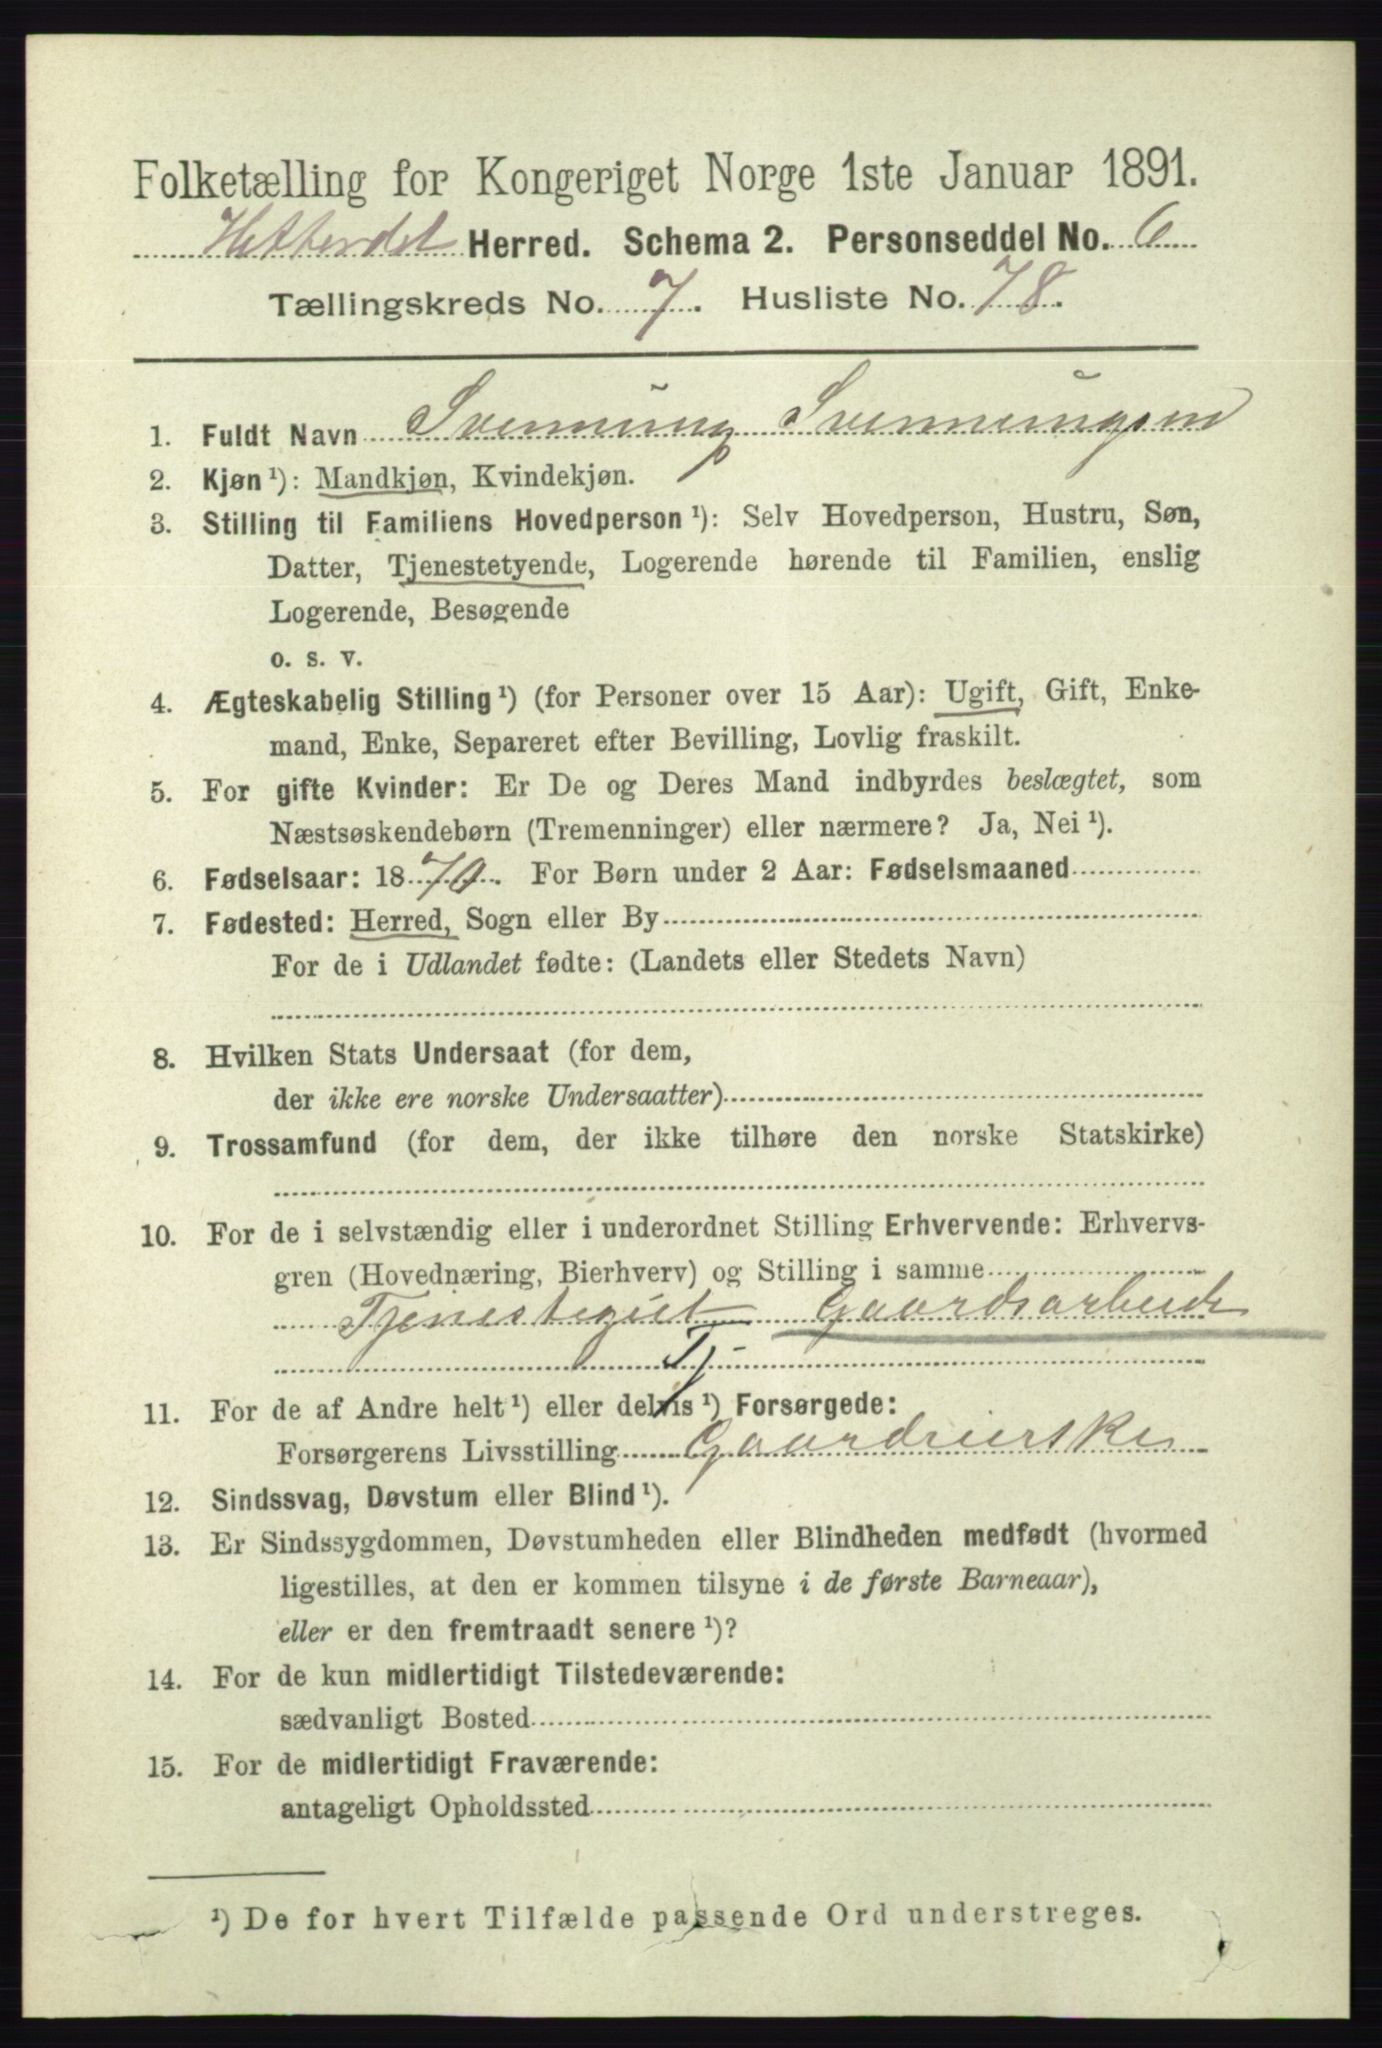 Folketælling for Kongeriget Norge 1ste Januar 1891.
Hitterdal Herred. Schema 2. Personseddel No. 6
Tællingskreds No. 7. Husliste No. 78.
1. Fuldt Navn Svennung Svennungsen
2. Kjøn ¹): Mandkjøn, Kvindekjøn.
3. Stilling til Familiens Hovedperson ¹): Selv Hovedperson, Hustru, Søn,
Datter, Tjenestetyende, Logerende hørende til Familien, enslig
Logerende, Besøgende
o. s. v.
4. Ægteskabelig Stilling ¹) (for Personer over 15 Aar): Ugift, Gift, Enke-
mand, Enke, Separeret efter Bevilling, Lovlig fraskilt.
5. For gifte Kvinder: Er De og Deres Mand indbyrdes beslægtet, som
Næstsøskendebørn (Tremenninger) eller nærmere? Ja, Nei ¹).
6. Fødselsaar: 1870. For Børn under 2 Aar: Fødselsmaaned
7. Fødested: Herred, Sogn eller By
For de i Udlandet fødte: (Landets eller Stedets Navn)
8. Hvilken Stats Undersaat (for dem,
der ikke ere norske Undersaatter)
9. Trossamfund (for dem, der ikke tilhøre den norske Statskirke)
10. For de i selvstændig eller i underordnet Stilling Erhvervende: Erhvervs-
gren (Hovednæring, Bierhverv) og Stilling i samme
Tjenestegut Gaardsarbeide
Tj-
11. For de af Andre helt ¹) eller delvis ¹) Forsørgede:
Forsørgerens Livsstilling Gaardeierske
12. Sindssvag, Døvstum eller Blind ¹).
13. Er Sindssygdommen, Døvstumheden eller Blindheden medfødt (hvormed
ligestilles, at den er kommen tilsyne i de første Barneaar),
eller er den fremtraadt senere ¹)?
14. For de kun midlertidigt Tilstedeværende:
sædvanligt Bosted
15. For de midlertidigt Fraværende:
antageligt Opholdssted
¹) De for hvert Tilfælde passende Ord understreges.